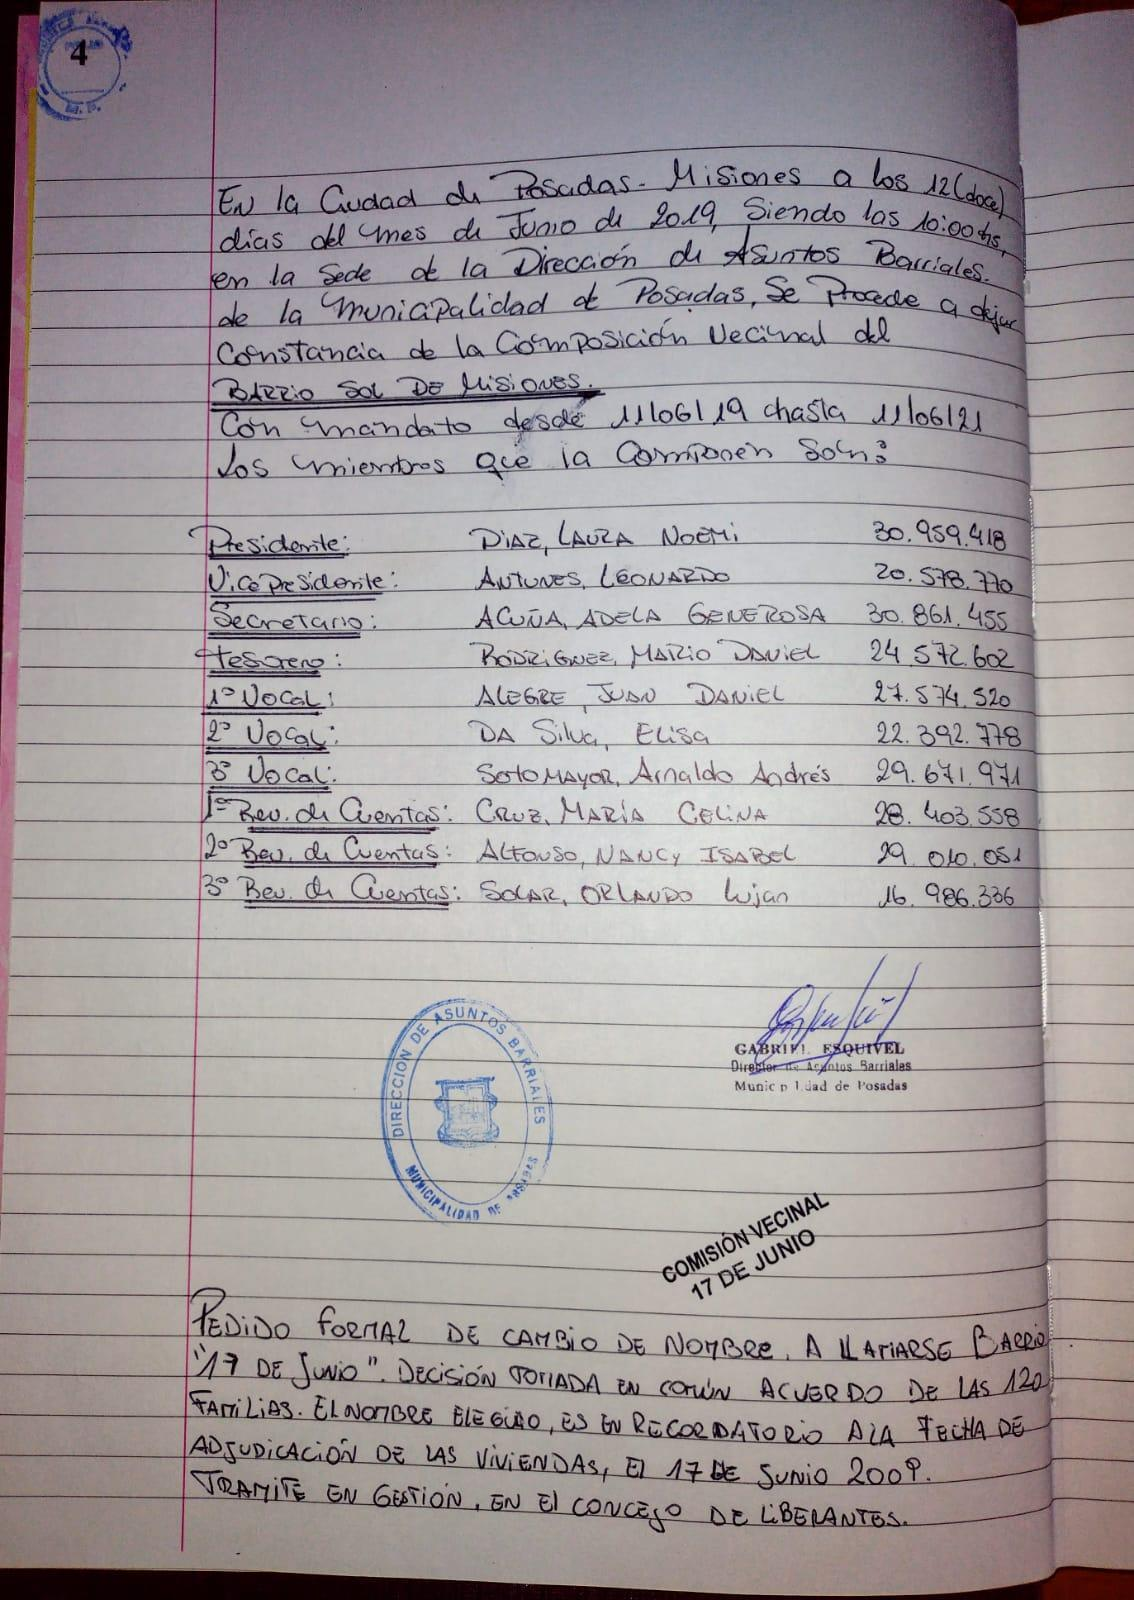 4
En la Ciudad de Posadas - Misiones a los 12 (doce)
días del mes de Junio de 2019, Siendo las 10:00hs,
en la Sede de la Dirección de Asuntos Barriales.
de la Municipalidad de Posadas, Se Procede a dejar
Constancia de la Composición Vecinal del
BARRIO SOL DE MISIONES.
Con mandato desde 11/06/19 hasta 11/06/21
Los miembros que la Componen Son:
Presidente: DIAZ, LAURA NOEMI 30.959.418
Vice presidente: ANTUNES, LEONARDO 20.578.770
Secretario: ACUÑA, ADELA GENEROSA 30.861.455
Tesorero: RODRIGUEZ, MARIO DANIEL 24.572.602
1º Vocal: ALEGRE, JUAN DANIEL 27.574.520
2º Vocal: DA Silva, Elisa 22.392.778
3º Vocal: SOTOMAYOR, Arnaldo Andrés 29.671.971
1º Rev. de Cuentas: CRUZ, MARÍA CELINA 28.403.558
2º Rev. de Cuentas: ALFONSO, NANCY ISABEL 29.010.051
3º Rev. de Cuentas: SOLAR, ORLANDO Lujan 16.986.336
DIRECCION DE ASUNTOS BARRIALES
MUNICIPALIDAD DE POSADAS
GABRIEL ESQUIVEL
Director de Asuntos Barriales
Municipalidad de Posadas
COMISIÓN VECINAL
17 DE JUNIO
PEDIDO FORMAL DE CAMBIO DE NOMBRE. A LLAMARSE BARRIO
"17 DE JUNIO". DECISIÓN TOMADA EN COMÚN ACUERDO DE LAS 120
FAMILIAS. EL NOMBRE ELEGIDO, ES EN RECORDATORIO A LA FECHA DE
ADJUDICACIÓN DE LAS VIVIENDAS, EL 17 DE JUNIO 2009.
TRAMITE EN GESTIÓN, EN El CONCEJO DE LIBERANTES.